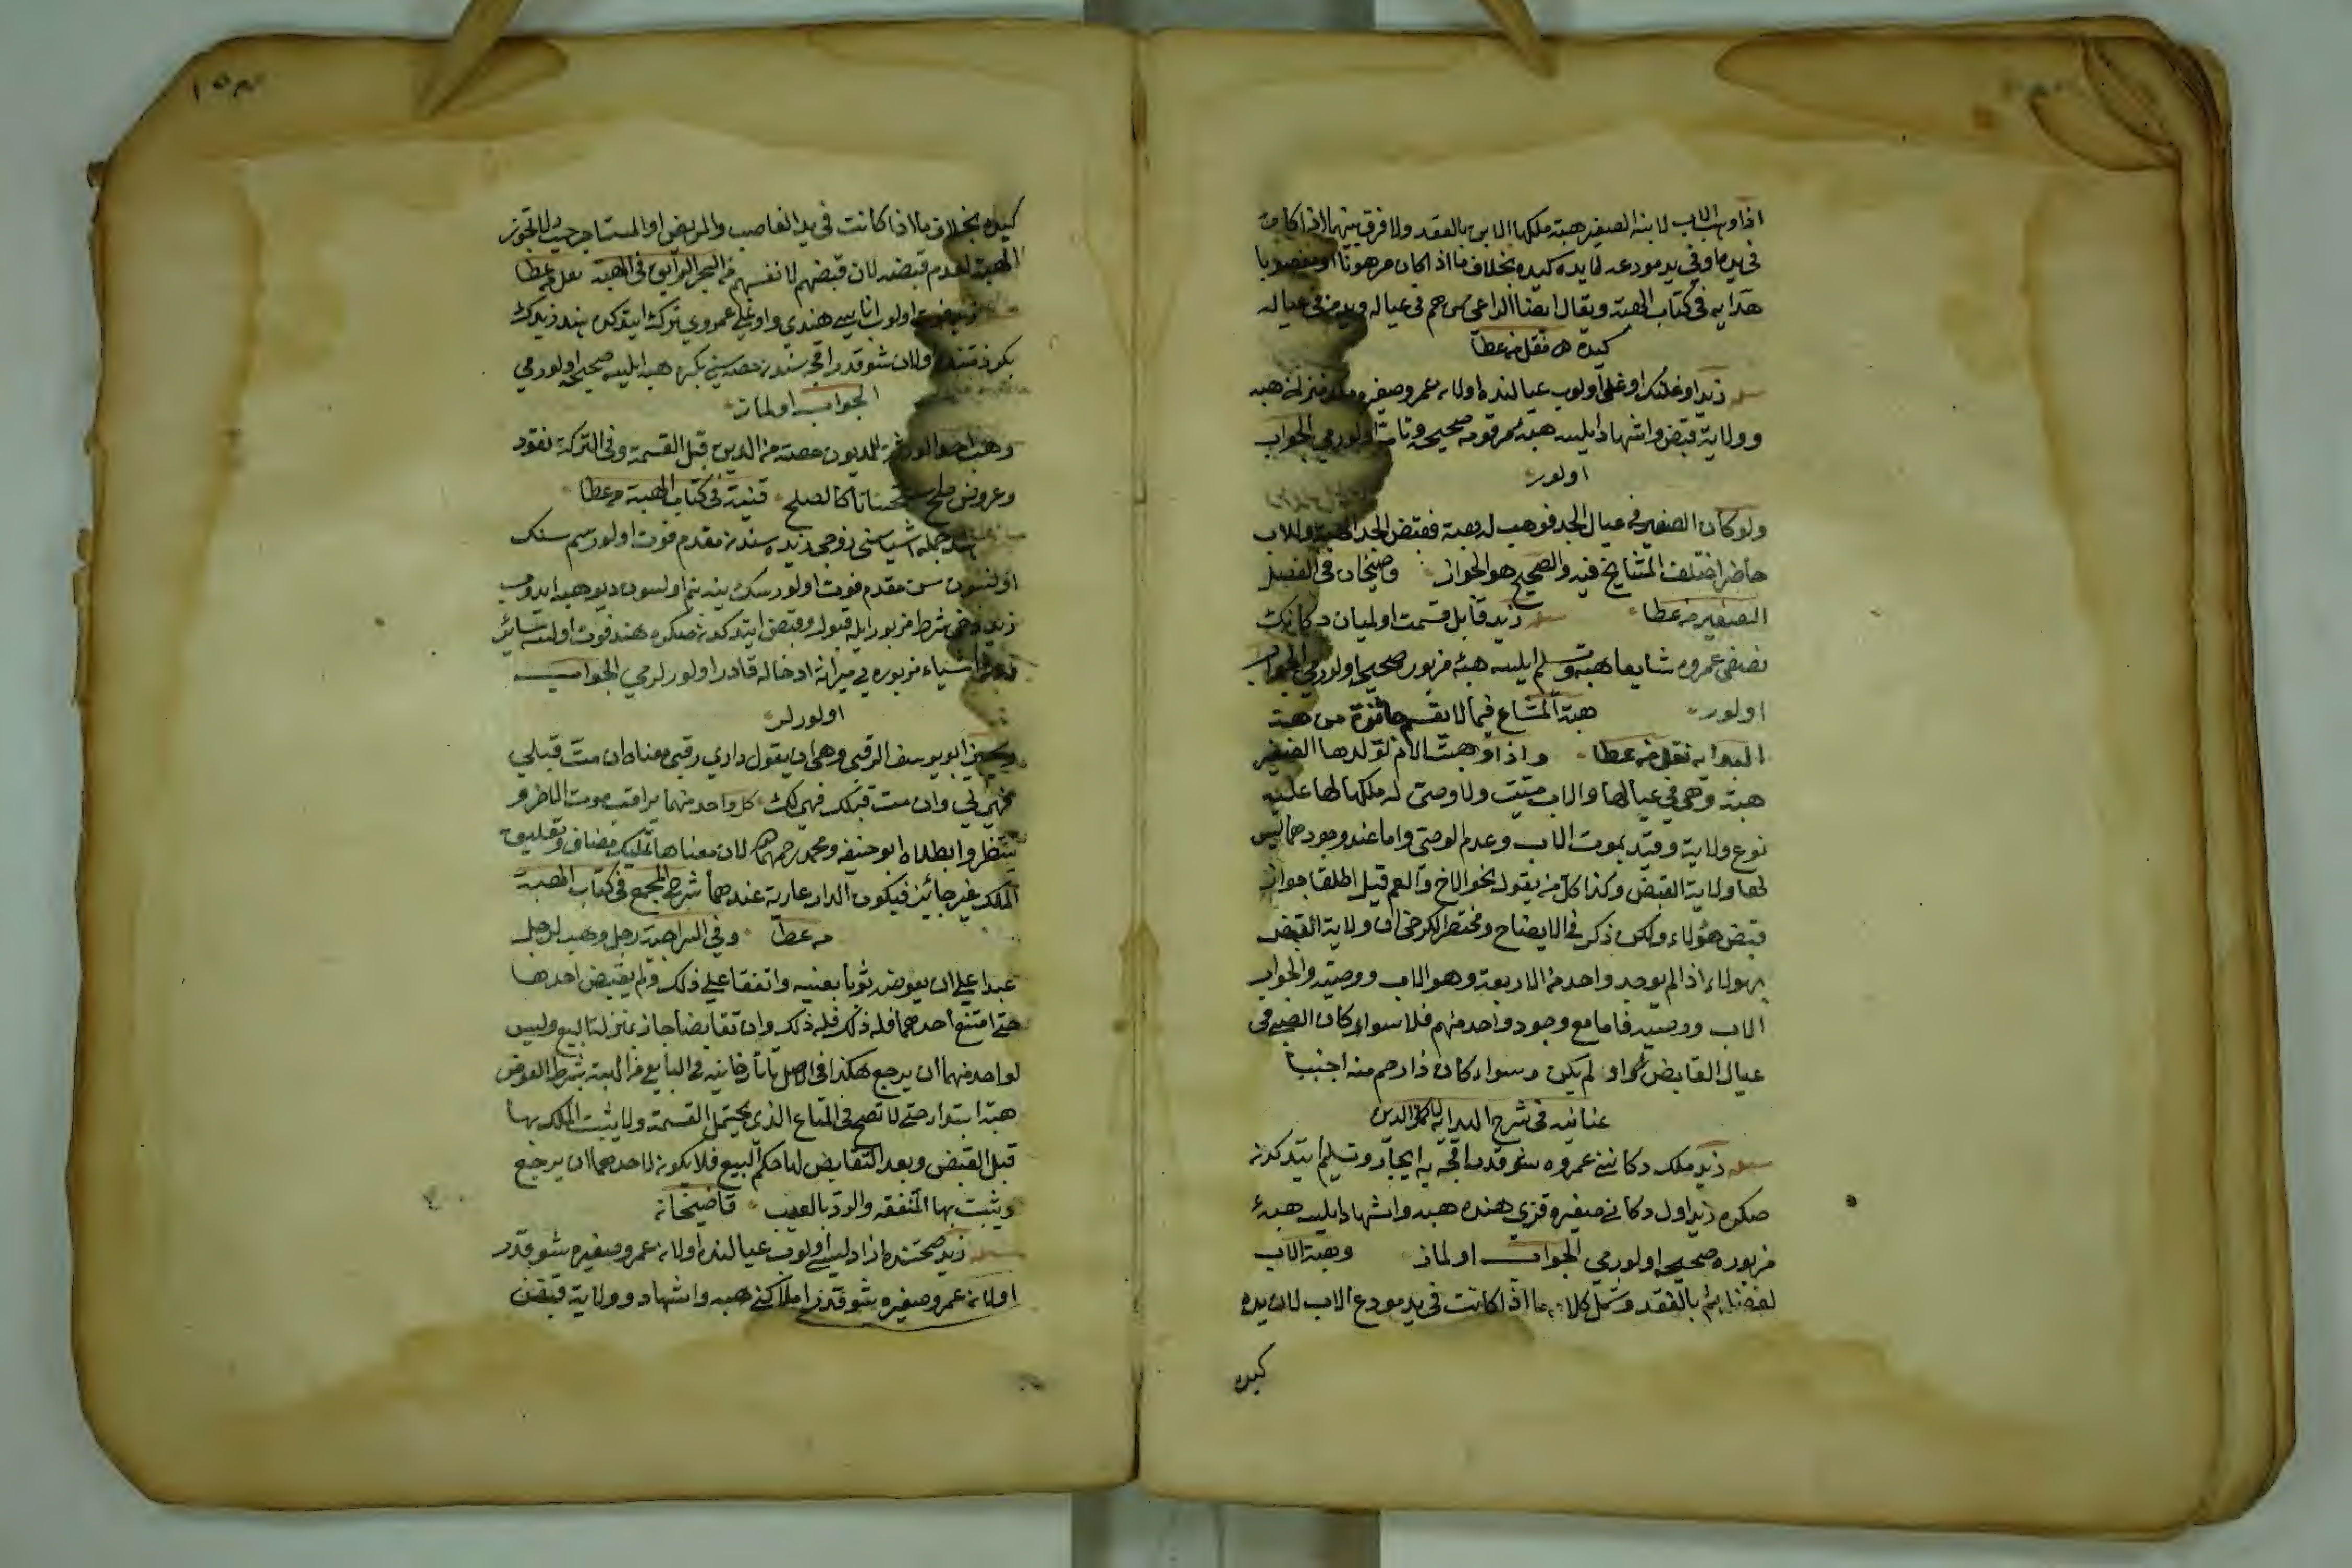 اذا وهب الاب لابنه الصغير هبة ملكها الابن بالعقد ولا فرق بينهما اذا كان
في يده او في يد مودعه لان يده كيده بخلاف ما اذا كان مرهونا او مغصوبا
هدايه في كتاب الهبة ويقال ايضا في عياله
كيده نقل من عطا
زيد اوغلنك اوغلى اولوب عيالنده اولان عمرو صغيره هبه
وولاية قبض واشهاد ايلسه هبه مرقومه صحيحه وتامه اولورمى الجواب
اولور
ولو كان الصغير في عيال الجد فوهب له هبة فقبض الجد الهبة والاب
حاضر اختلف المشايخ فيه والصحيح هو الجواز قاضيخان في الفصل
الصغير من عطا زيد قابل قسمت اولميان دكانك
نصفنى عمروه شايعا هبه وتسلم ايلسه هبۀ مزبور صحيح اولورمى الجواب
اولور هبة المشاع فيما لا يقسم جائزة من هبة
الهدايه نقل من عطا واذا وهبت الام لولدها الصغير
هبة وهي في عيالها والاب ميت ولا وصى له ملكها لها عليه
نوع ولاية وقيد بموت الاب وعدم الوصى واما عند وجودهما ليس
لها ولاية القبض وكذا كل من يقوله نحو الاخ والعم قيل اطلق جواز
قبض هؤلاء ولكن ذكر في الايضاح ومختصر الكرخى ان ولاية القبض
لهولاء اذا لم يوجد واحد من الاربعة وهو الاب ووصيه والجد اب
الاب ووصيه فاما مع وجود واحد منهم فلا سواء كان الصبى في
عيال القابض او لم يكن وسواء كان ذا رحم منه اجنبيا
عنايه في شرح الهدايه لاكمل الدين
زيد ملك دكاننى عمروه شو قدر اقچه يه ايجار وتسليم ايتدكدن
صكره زيد اول دكانى صغيره قزى هنده هبه واشهاد ايلسه هبۀ
مزبوره صحيحه اولورمى الجواب اولماز وهبة الاب
لطفله يتم بالعقد وشمل كلامه ما اذا كانت في يد مودع الاب لان يده
كيده
كيده بخلاف ما اذا كانت في يد الغاصب والمرتهن او المستاجر حيث لا تجوز
الهبة لعدم قبضه لان قبضهم لانفسهم من البحر الرايق في الهبة نقل من عطا
فوت اولوب اناسى هندى واوغلى عمروى ترك ايتدكده هند زيدك
بكر ذمتنده اولان شو قدر اقچه سندن حصه سنى بكره هبه ايلسه صحيحه اولورمى
الجواب اولماز
وهب احد الورثة للمديون حصته من الدين قبل القسمة وفي التركة نقود
وعروض صح استحسانا كالصلح قنيه في كتاب الهبة من عطا
هند جمله اشياسنى زوجى زيده سندن مقدم فوت اولورسم سنك
اولسون سن مقدم فوت اولورسك ينه بنم اولسون ديو هبه ايدوب
زيد دخى شرط مزبور ايله قبول وقبض ايتدكدن صكره هند فوت اولسه سائر
ورثه اشياء مزبوره يى ميراثه ادخاله قادر اولورلرمى الجواب
اولورلر
ويجيز ابو يوسف الرقبى وهى ان يقول دارى رقبى معناه ان مت قبلي
فهى لي وان مت قبلك فهى لك كل واحد منهما يراقب موت الاخر و
ينتظر وابطلاه ابو حنيفه ومحمد رحمهما الله لان معناها تمليك مضاف وتعليق
الملك غير جائز فيكون الدار عارية عندهما شرح المجمع في كتاب الهبة
من عطا وفي السراجية رجل وهب لرجل
عبدا على ان يعوضه ثوبا بعينه واتفقا على ذلك ولم يقبض احدهما
حتى امتنع احدهما فله ذلك وان تقابضا جاز بمنزلة البيع وليس
لواحد منهما ان يرجع هكذا في الاصل تاتارخانيه في البايع من الهبة بشرط العوض
هبة ابتداء حتى لا تصح في المشاع الذى يحتمل القسمة ولا يثبت الملك بها
قبل القبض وبعد التقابض لها حكم البيع فلا يكون لاحدهما ان يرجع
ويثبت بها الشفعه والرد بالعيب قاضيخان
زيد صحتنده ازادليسى اولوب عيالنده اولان عمرو صغيره شو قدر
اولان عمرو صغيره شو قدر املاكنى هبه واشهاد وولاية قبضن